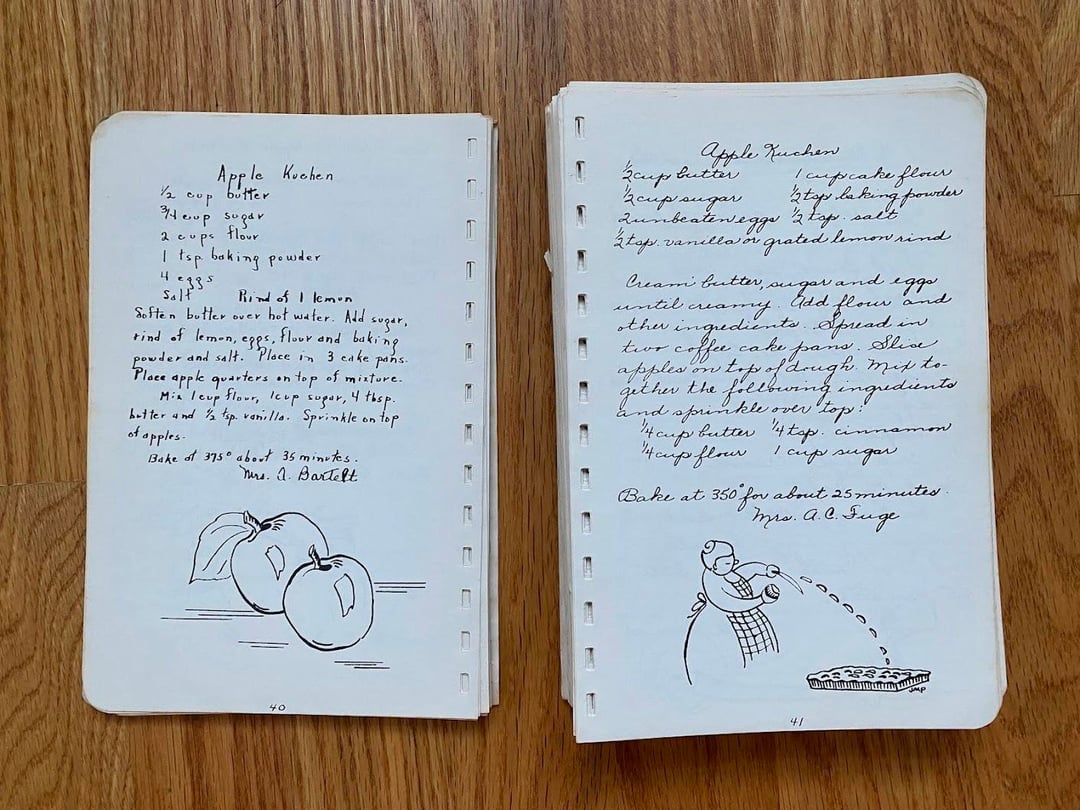 Apple Kuchen
½ cup butter
¾ cup sugar
2 cups flour
1 tsp baking powder
4 eggs
Salt Rind of 1 lemon
Soften butter over hot water. Add sugar,
rind of lemon, eggs, flour and baking
powder and salt. Place in 3 cake pans.
Place apple quarters on top of mixture.
Mix 1 cup flour, 1 cup sugar, 4 tbsp.
butter and ½ tsp. vanilla. Sprinkle on top
of apples.
Bake at 375° about 35 minutes.
Mrs. A. Bartelt
40
Apple Kuchen
½ cup butter 1 cup cake flour
½ cup sugar ½ tsp baking powder
2 unbeaten eggs ½ tsp. salt
½ tsp. vanilla or grated lemon rind
Cream butter, sugar and eggs
until creamy. Add flour and
other ingredients. Spread in
two coffee cake pans. Slice
apples on top of dough. Mix to-
gether the following ingredients
and sprinkle over top:
¼ cup butter ¼ tsp. cinnamon
¼ cup flour 1 cup sugar
Bake at 350° for about 25 minutes.
Mrs. A.C. Fuge
JMP
41